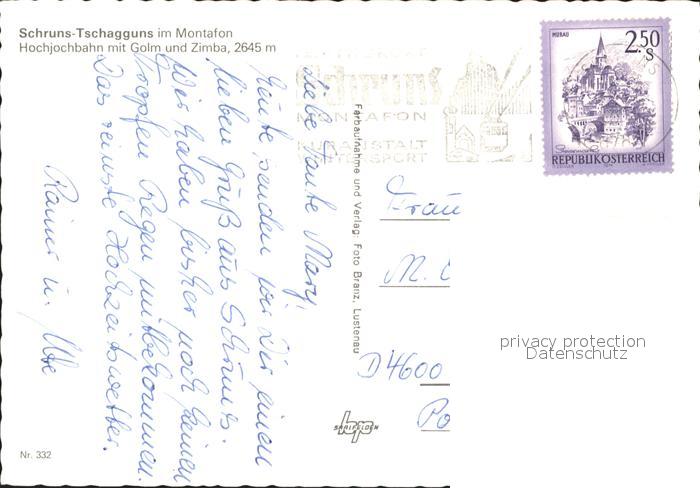 Schruns-Tschagguns im Montafon
Hochjochbahn mit Golm und Zimba, 2645 m
Schruns
MONTAFON
KURANSTALT
WINTERSPORT
MURAU
2.50
S
REPUBLIK ÖSTERREICH
Liebe Tante Mary,
Heute senden wir Dir einen
lieben Gruß aus Schruns.
Wir haben bisher noch keinen
Tropfen Regen mitbekommen.
Das reinste Hochzeitswetter.
Rainer u. Ute
Farbaufnahme und Verlag: Foto Branz, Lustenau
Frau
M.
D 4600
Po
privacy protection
Datenschutz
bp
SAALFELDEN
Nr. 332